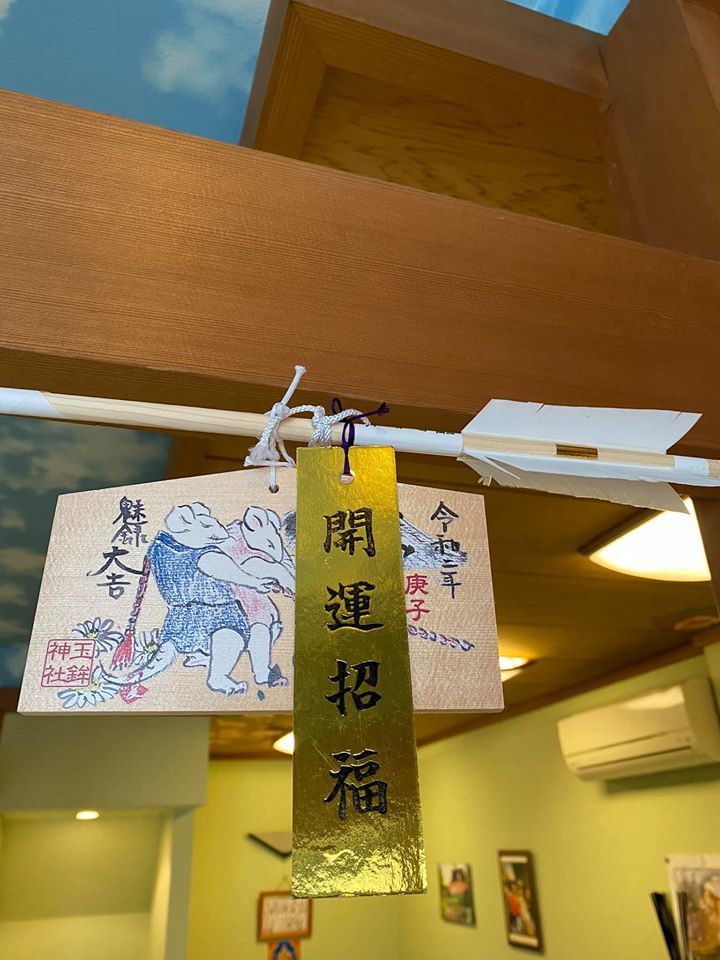 開運招福
令和二年
庚子
魅録
大吉
玉鉾
神社